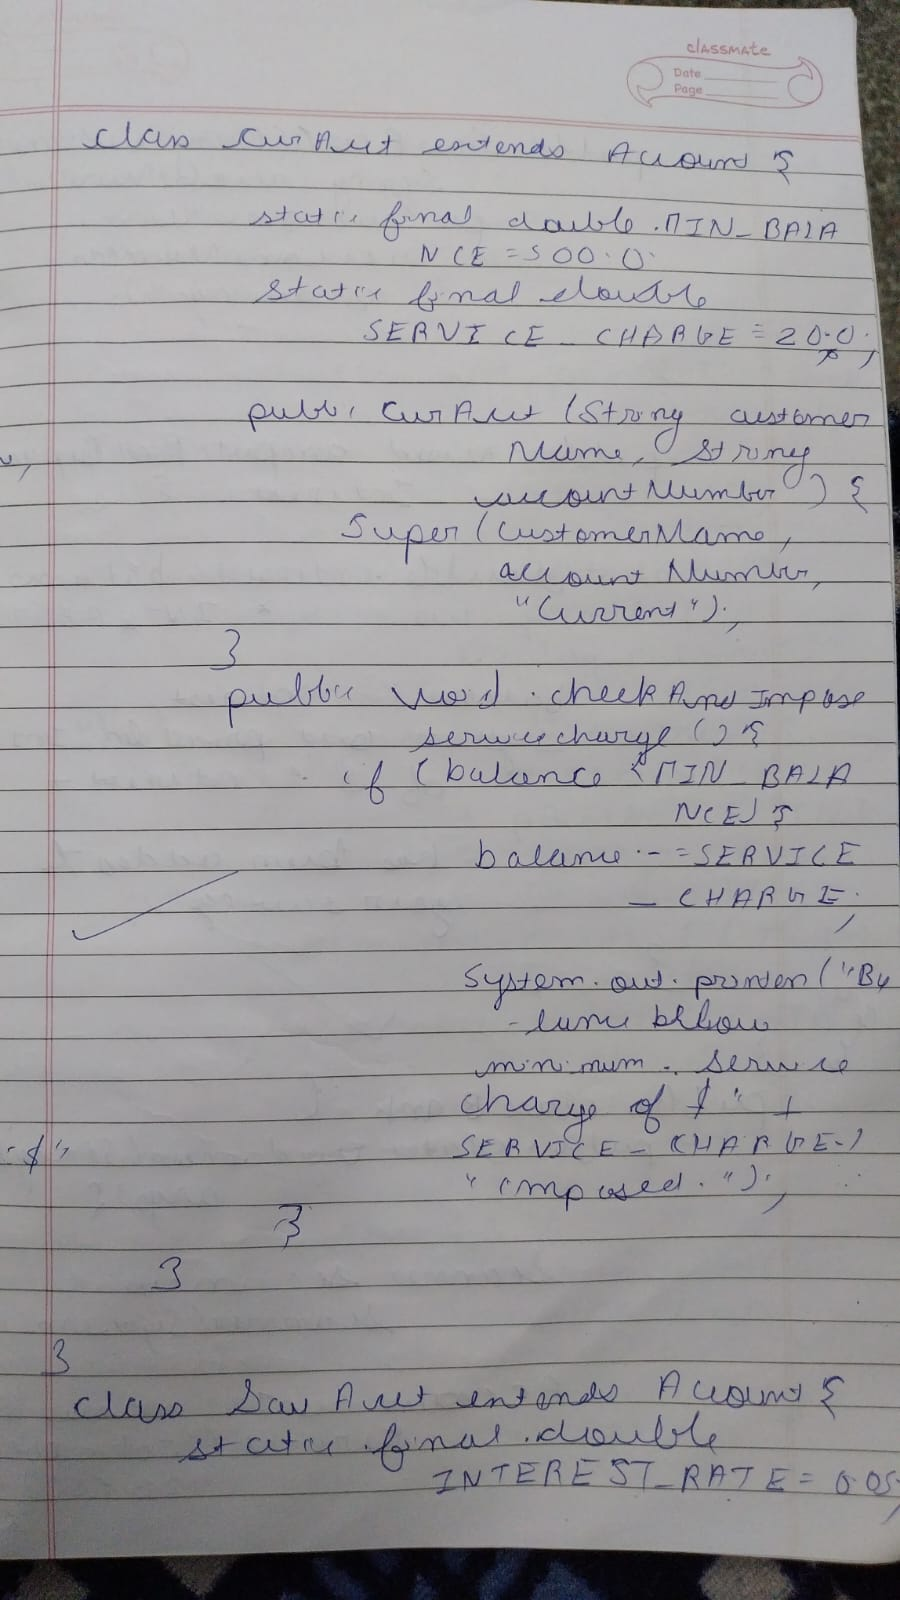 classmate
Date
Page
class CurAcct extends Account {
static final double MIN_BALA
NCE = 500.0
static final double
SERVICE_CHARGE = 20.0;
public CurAcct (String customer
Name, String
accountNumber) {
Super (CustomerName,
account Number,
"Current");
}
public void checkAndImpose
servicecharge () {
if (balance < MIN_BALA
NCE) {
balance -= SERVICE
_ CHARGE;
System.out.println("Ba
-lance below
minimum. Service
charge of $" +
SERVICE_CHARGE +
=$",
"imposed.");
}
}
}
class SavAcct extends Account {
static final double
INTEREST_RATE = 0.05;